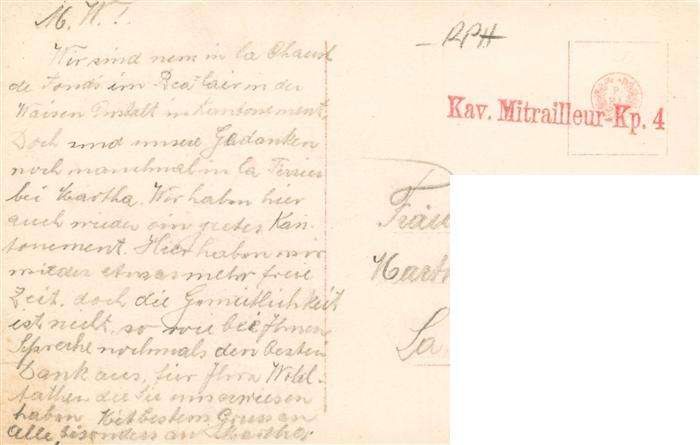 M. W.!
Wir sind nem in la Chaud
de Fonds im Beau Clair in der
Waisen Anstalt in Kantonement.
Doch sind unsere Gedanken
noch manchmal in la Ferriere
bei Martha. Wir haben hier
auch wieder ein gutes Kan-
tonement. Hier haben wir
wieder etwas mehr freie
Zeit, doch die Gemütlichkeit
ist nicht, so wie bei Ihnen
Spreche nochmals den besten
Dank aus, für Ihre Wohl-
taten die Sie uns erwiesen
haben. Mit bestem Gruss an
alle, besonders an Martha.
RPH
Kav. Mitrailleur-Kp. 4
Fräu
Marth
La